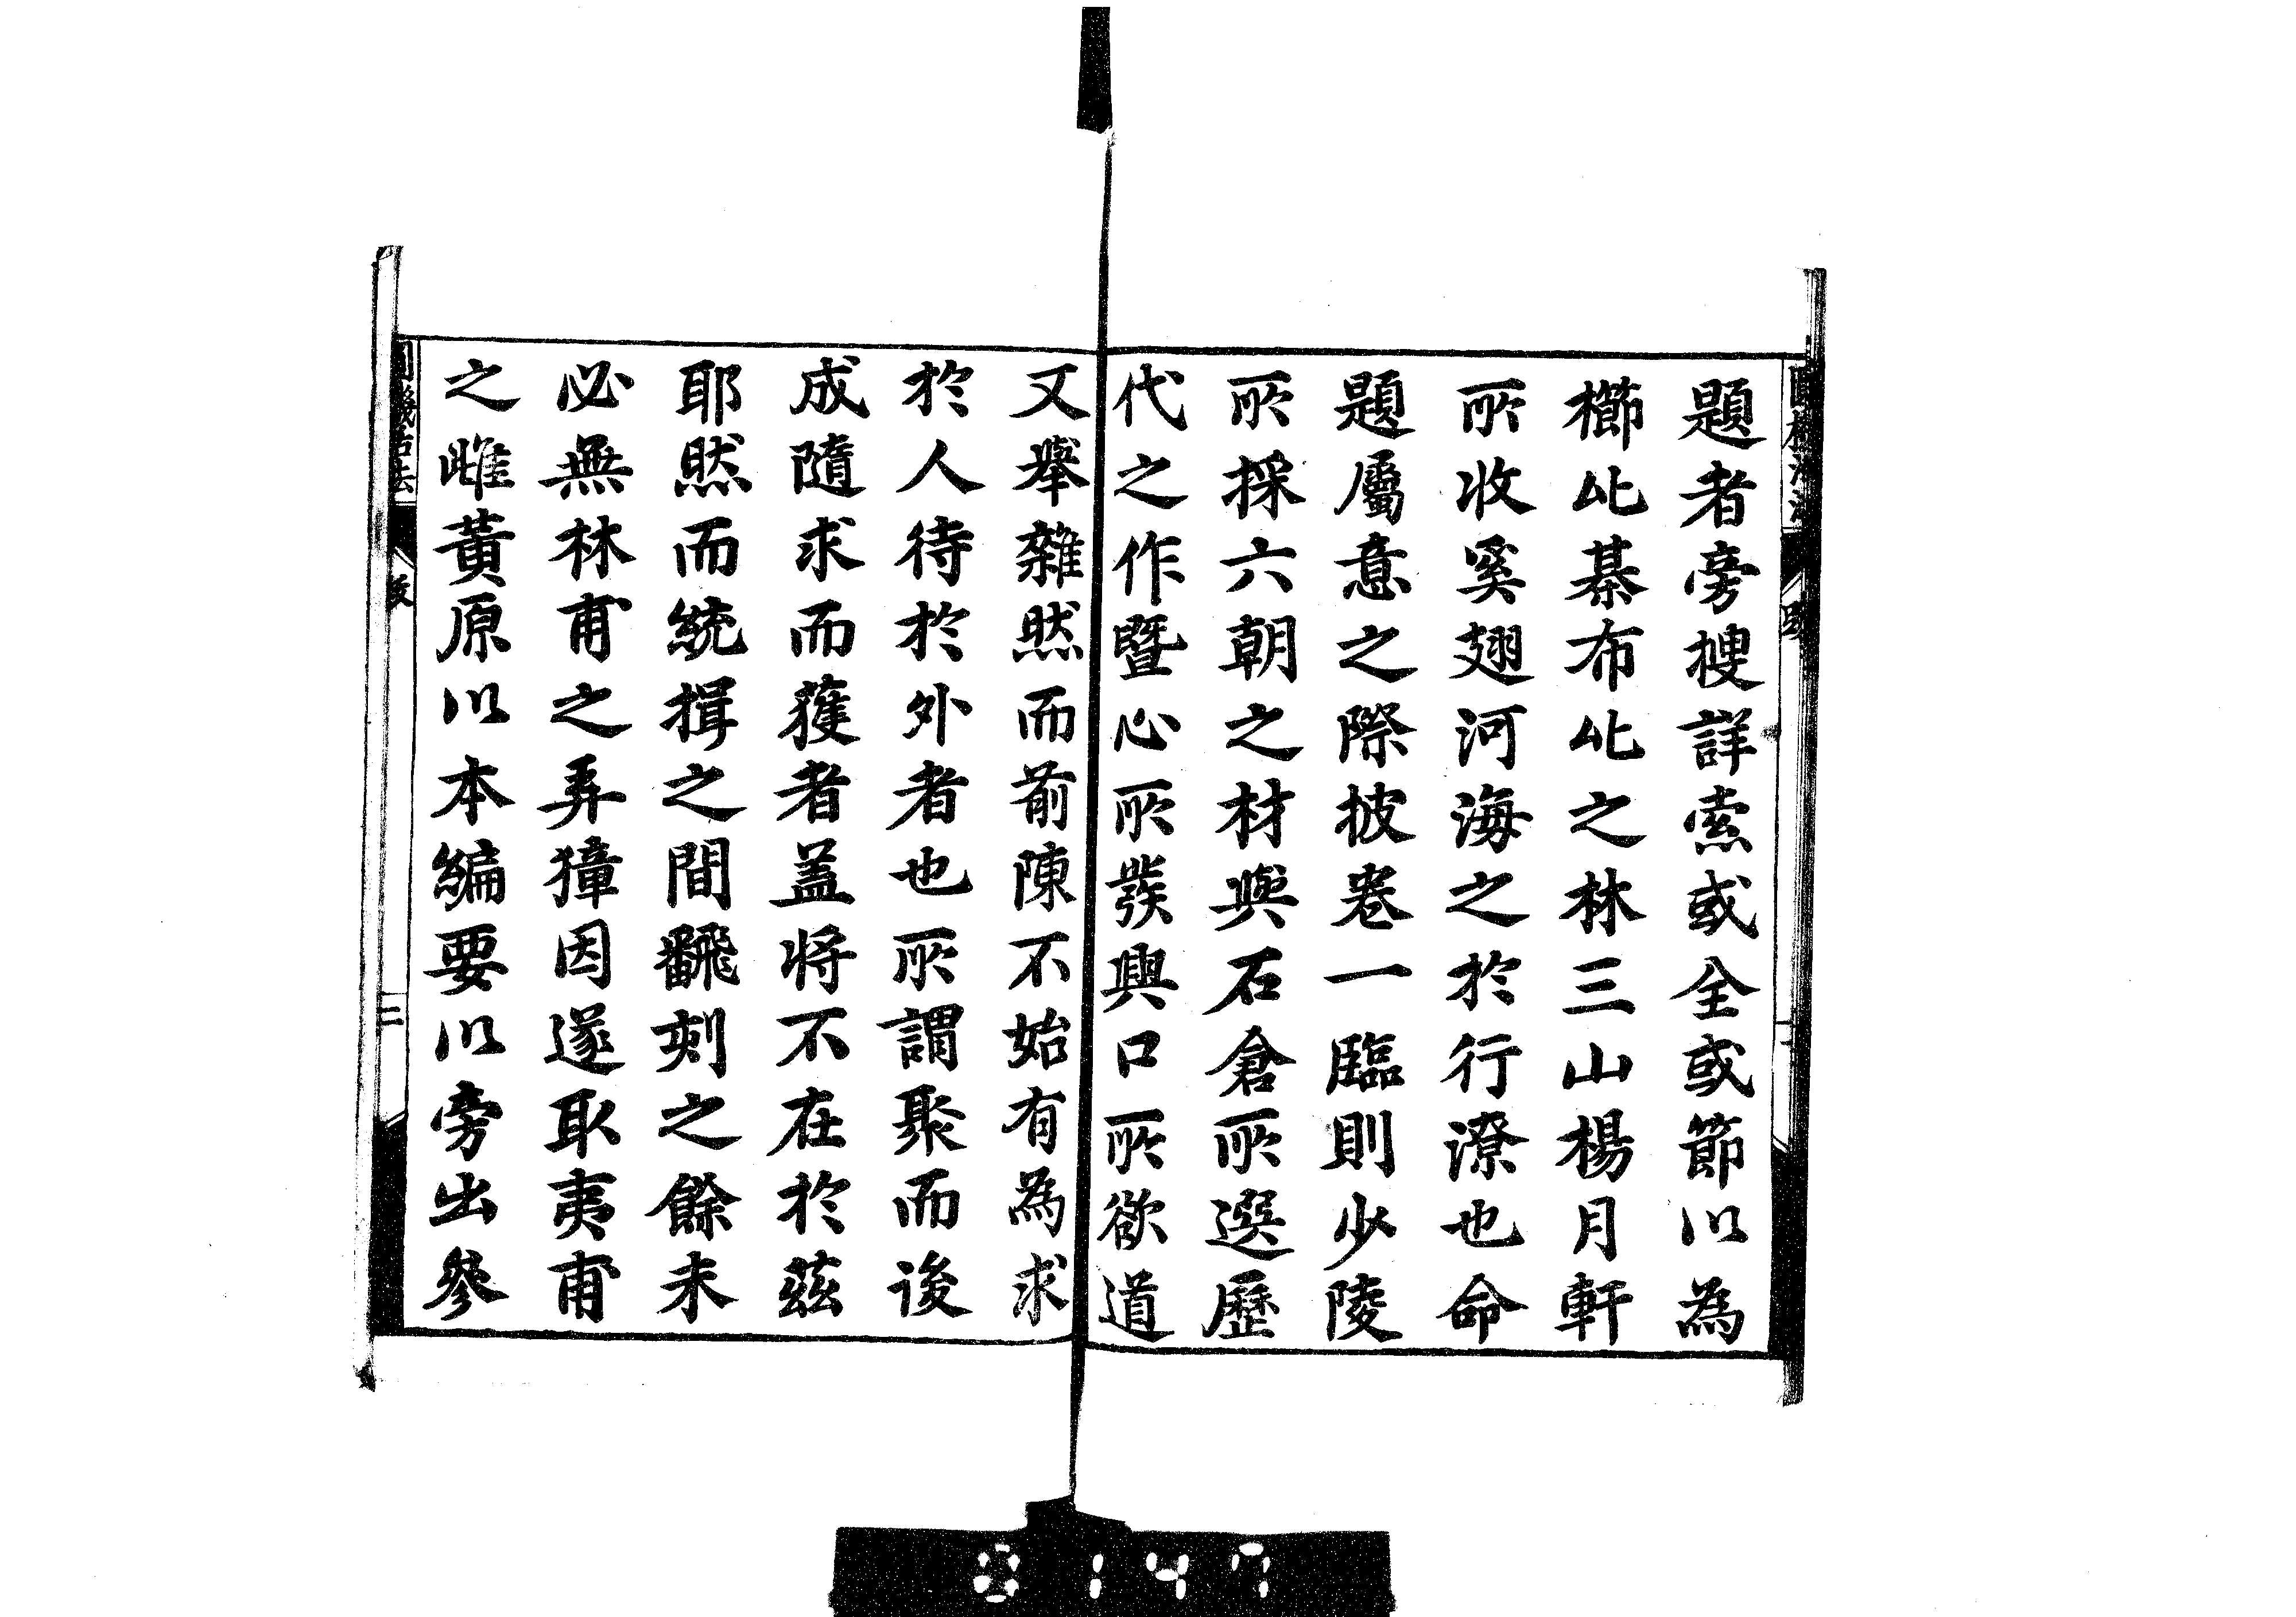 題者旁搜詳索或全或節以為
櫛比棊布比之林三山楊月軒
所收奚翅河海之於行潦也命
題屬意之際披卷一臨則少陵
所採六朝之材與石倉所選歷
代之作暨心所發興口所欲道
又舉雜然而前陳不始有為求
於人待於外者也所謂聚而後
成隨求而獲者盖将不在於茲
耶然而統揖之間飜刻之餘未
必無林甫之弄獐因遂取夷甫
之雌黃原以本編要以旁出參
二
0147